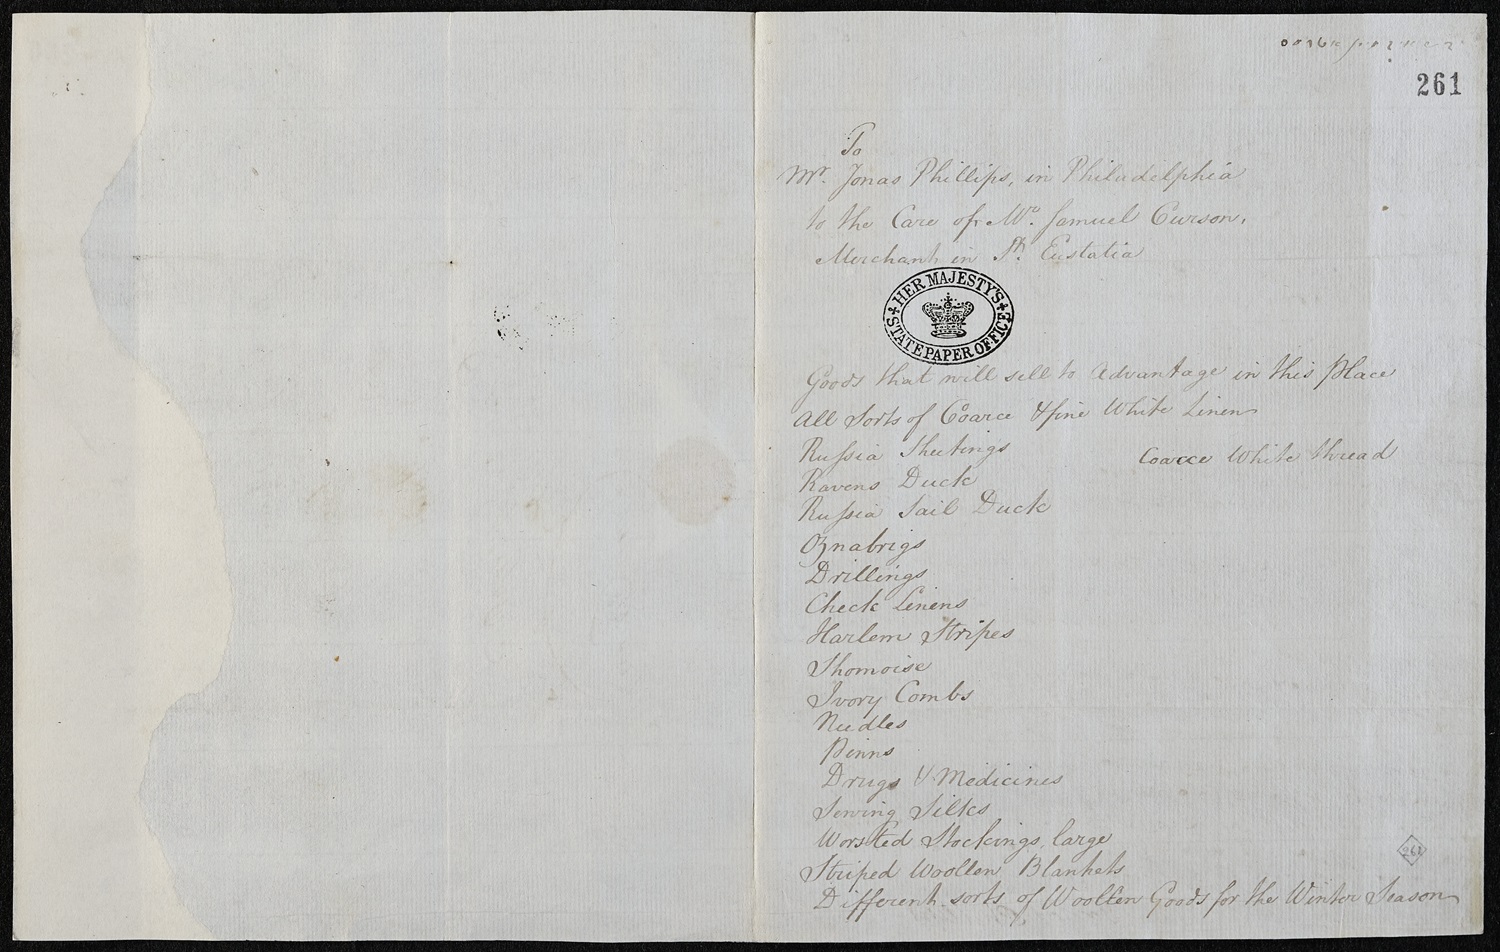 261
To
Mr. Jonas Phillips, in Philadelphia
to the Care of Mr. Samuel Curson,
Merchant in St. Eustatia
HER MAJESTY'S STATE PAPER OFFICE
Goods that will sell to Advantage in this Place
All Sorts of Coarce & fine White Linen
Russia Sheetings Coarce White thread
Ravens Duck
Russia Sail Duck
Oznabrigs
Drillings
Check Linens
Harlem Stripes
Shomoise
Ivory Combs
Needles
Pinns
Drugs & Medicines
Sewing Silks
Worsted Stockings, large
Striped Woollen Blankets
Different sorts of Woollen Goods for the Winter Season